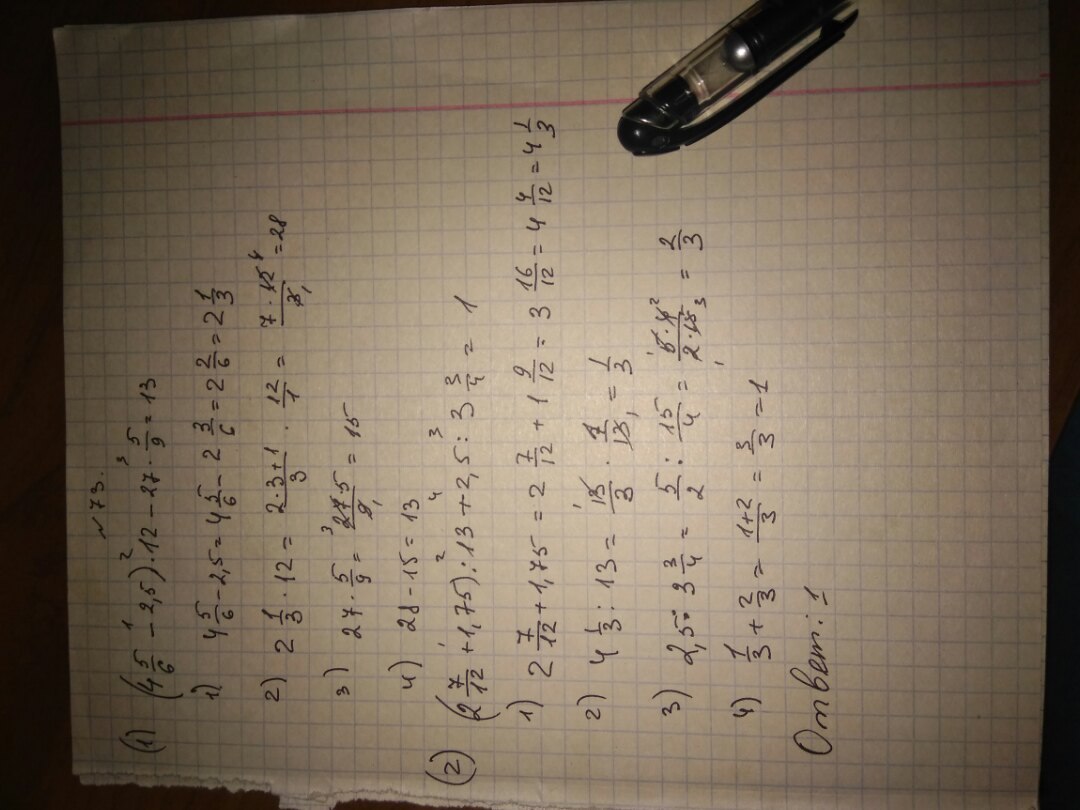 №73.
(1) (4 5/6 - 2,5) · 12 - 27 · 5/9 = 13
1) 4 5/6 - 2,5 = 4 5/6 - 2 3/6 = 2 2/6 = 2 1/3
2) 2 1/3 · 12 = (2·3+1)/3 · 12/1 = (7·12)/3 = 28
3) 27 · 5/9 = (27·5)/9 = 15
4) 28 - 15 = 13
(2) (2 7/12 + 1,75) : 13 + 2,5 : 3 3/4 = 1
1) 2 7/12 + 1,75 = 2 7/12 + 1 9/12 = 3 16/12 = 4 4/12 = 4 1/3
2) 4 1/3 : 13 = 13/3 · 1/13 = 1/3
3) 2,5 : 3 3/4 = 5/2 : 15/4 = (5·4)/(2·15) = 2/3
4) 1/3 + 2/3 = (1+2)/3 = 3/3 = 1
Ответ: 1